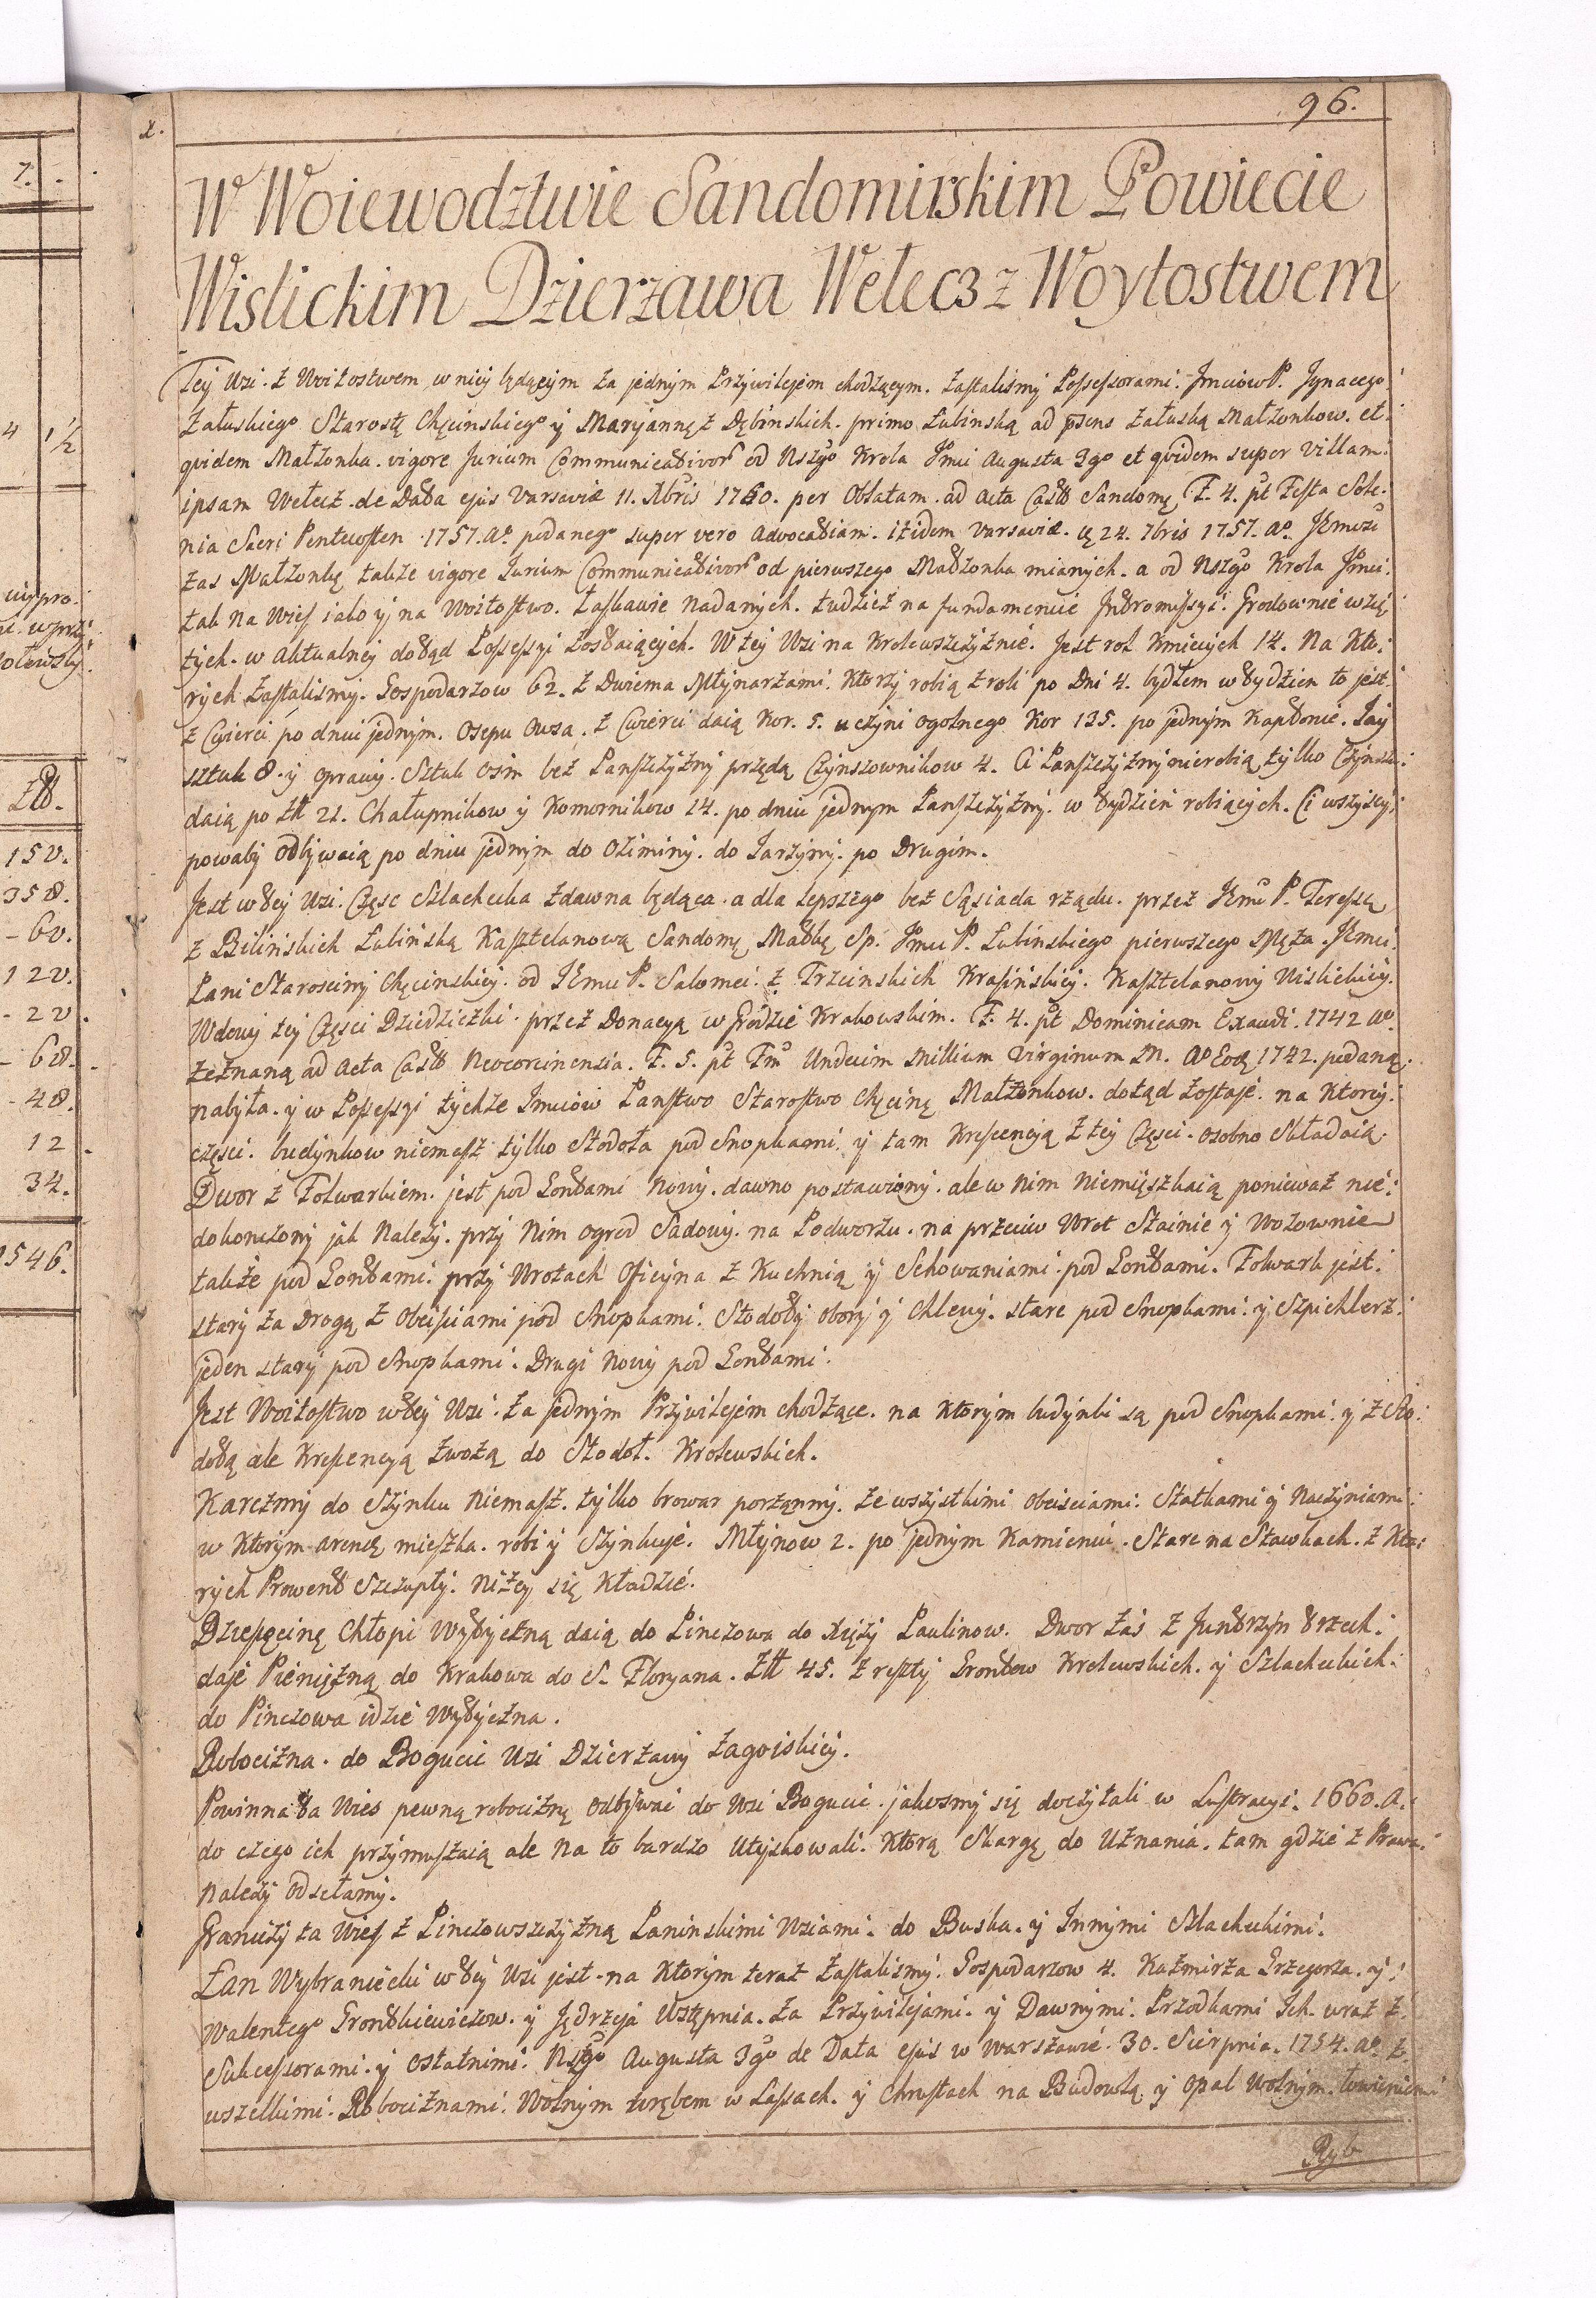 7.
4 1½
wypro.
ZŁ.
15 0.
35 8.
- 60.
1 20.
- 20.
- 68.
- 48.
12.
34.
1546.
96.
W Woiewodztwie Sandomirskim Powiecie
Wislickim Dzierzawa Welecz z Woytostwem
Tey Wsi. z Woitostwem w niey będącym za jednym Przywilejem chodzącym. Zastalismy Possessorami. Jmciow P. Jgnacego
Załuskiego Starostę Chęcinskiego y Maryannę z Dębinskich. primo Łubinską ad psens Załuską Małzonkow. et.
quidem Małzonka. vigore Jurium Communicativor od Nszgo Krola Jmci Augusta 3go et quidem super Villam.
ipsam Welecz. de Data ejus Varsaviæ 11. Xbris 1760. per Oblatam. ad acta Castr Sandomę F. 4. pt Festa Sole:
nia Sacri Pentecosten 1757. Ao podanego super vero Advocatiam. itidem Varsaviæ. 24. 7bris 1757. Ao. JEmczi
zas Małzonkę takze vigore Jurium Communicativor od pierwszego Małzonka mianych. a od Nszgo Krola Jmci.
tak na Wies iako y na Woitostwo. Łaskawie Nadanych. tudziez na fundamencie Jntromissyi. Grodownie wzię
tych. w Aktualney dotąd Possessyi Zostaiących. W tey Wsi na Krolewszczyznie. Jest rol Kmiecych 14. Na Kto:
rych Zastalismy. Gospodarzow 62. z Dwiema Młynarzami. Ktorzy robią z roli po Dni 4. bydłem w tydzien to jest.
z Cwierci po dniu jednym. Osepu Owsa. z Cwierci daią Kor. 5. uczyni ogolnego Kor 135. po jednym Kapłonie. Jay
sztuk 8. y oprawy. Sztuk osm bez Panszczyzny przędą Czynszownikow 4. Ci Panszczyzny nierobią tylko Czynsz:
daią po Zł 21. Chałupnikow y Komornikow 14. po dniu jednym Panszczyzny. w tydzien robiących. Ci wszyscy
powaby odbywaią po dniu jednym do Oziminy. do Jarzyny. po Drugim.
Jest w tey Wsi. Częsc Szlachecka zdawna będąca. a dla lepszego bez Sąsiada rządu. przez JEmc P. Teressę
z Bilińskich Łubińską Kasztelanową Sandomę Matkę Sp. Jmci P. Łubinskiego pierwszego Męza. JEmci.
Pani Starosciny Chęcinskiey. od JEmci P. Salomei z Trzcinskich Krasińskiey. Kasztelanowy Wislickiey.
Wdowy tey Częsci Dziedziczki. przez Donacyą w Grodzie Krakowskim. F. 4. pt Dominicam Exaudi. 1742 Ao.
zeznaną ad Acta Castr Neocorcinensia. F. 5. pt Fm Undecim Millium Virginum M. Ao Eoq 1742. podaną.
nabyta. y w Possessyi tychze Jmciow Panstwo Starostwo Chęcinę Małzonkow. dotąd zostaje. na Ktorey.
częsci. budynkow niemasz tylko Stodoła pod Snopkami y tam Krescencyą z tey Częsci. osobno Składaią.
Dwor z Folwarkiem. jest pod Gontami Nowy. dawno postawiony. ale w Nim Niemięszkaią poniewaz nie:
dokonczony jak Nalezy. przy Nim ogrod Sadowy. na Podworzu. na przeciw Wrot Stainie y Wozownie
takze pod Gontami. przy Wrotach Oficyna z Kuchnią y Schowaniami. pod Gontami. Folwark jest.
stary za Drogą z Obeysciami pod Snopkami. Stodoły obory y Chlewy. stare pod Snopkami. y Szpichlerz.
jeden stary pod Snopkami. Drugi Nowy pod Gontami.
Jest Woitostwo w tey Wsi. za jednym Przywilejem chodzące. na Ktorym budynki są pod Snopkami. y z Sto:
dołą ale Krescencyą zwozą do Stodoł. Krolewskich.
Karczmy do Szynku Niemasz. tylko browar porządny. ze wszystkimi Obeisciami. Statkami y Naczyniami.
w Ktorym arendę mieszka. robi y Szynkuje. Młynow 2. po jednym Kamieniu. Stare na Stawkach. z Kto:
rych Prowent Szczupły. Nizey się Kładzie.
Dziesięcinę Chłopi Wytyczną daią do Pinczowa do Xięzy Paulinow. Dwor zas z Juntrzyn trzech.
daje Pieniężną do Krakowa do S. Floryana. Zł 45. z reszty Grontow Krolewskich. y Szlacheckich.
do Pinczowa idzie Wytyczna.
Robocizna. do Bogucic Wsi Dzierzawy Zagoiskiey.
Powinna ta Wies pewną robociznę odbywać do Wsi Bogucic. jakosmy się doczytali w Lustracyi. 1660. A.
do czego ich przymuszaią ale Na to bardzo Utyskowali. Ktorą Skargę do Uznania. tam gdzie z Prawa.
Nalezy odsełamy.
Graniczy ta Wies z Pinczowszczyzną Paninskimi Wsiami. do Buska. y Innymi Szlacheckimi.
Łan Wybraniecki w tey Wsi jest. na Ktorym teraz Zastalismy. Gospodarzow 4. Kazmirza Grzegorza. y
Walentego Grontkiewiczow. y Jędrzeja Wstępnia. za Przywilejami. y Dawnymi. Przodkami Ich. wraz z.
Sukcessorami. y ostatnimi. Nszgo Augusta 3go de Data ejus w Warszawie. 30. Sierpnia. 1754. Ao. z.
wszelkimi. Robociznami. Wolnym wrębem w Lasach. y Chrustach na Budowlą y opał wolnym. łowieniem
Ryb